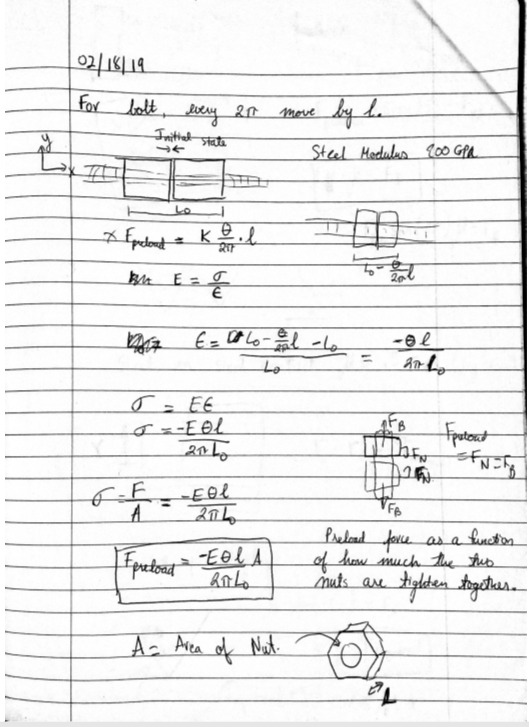 02/18/19
For bolt, every 2π move by l.
Initial state
Steel Modulus 200 GPa
y
x
L₀
x F_preload = K θ/2π · l
L₀ - θ/2π l
E = σ/ε
ε = (L₀ - θ/2π l - L₀)/L₀ = -θl/2πL₀
σ = Eε
σ = -Eθl/2πL₀
F_B
F_N
F_N
F_B
F_preload
= F_N = F_B
σ = F/A = -Eθl/2πL₀
F_preload = -Eθl/2πL₀ A
Preload force as a function
of how much the two
nuts are tighten together.
A = Area of Nut.
L